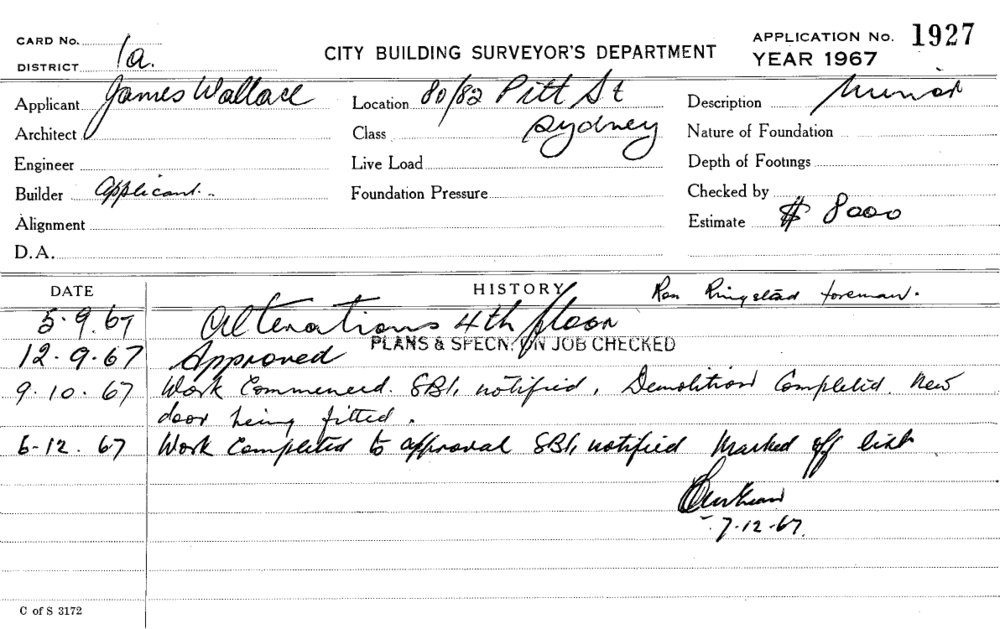 CARD No.
DISTRICT 1a.
CITY BUILDING SURVEYOR'S DEPARTMENT
APPLICATION No. 1927
YEAR 1967
Applicant James Wallace
Location 80/82 Pitt St
Description Minor
Architect
Class Sydney
Nature of Foundation
Engineer
Live Load
Depth of Footings
Builder Applicant.
Foundation Pressure
Checked by
Alignment
Estimate $ 8000
D.A.
DATE HISTORY Ron Ringstad foreman.
5.9.67 Alterations 4th floor
12.9.67 Approved PLANS & SPECN. ON JOB CHECKED
9.10.67 Work Commenced. SBI, notified, Demolition Completed. New
door being fitted.
6-12.67 Work Completed to approval SBI, notified Marked off list
7-12-67.
C of S 3172